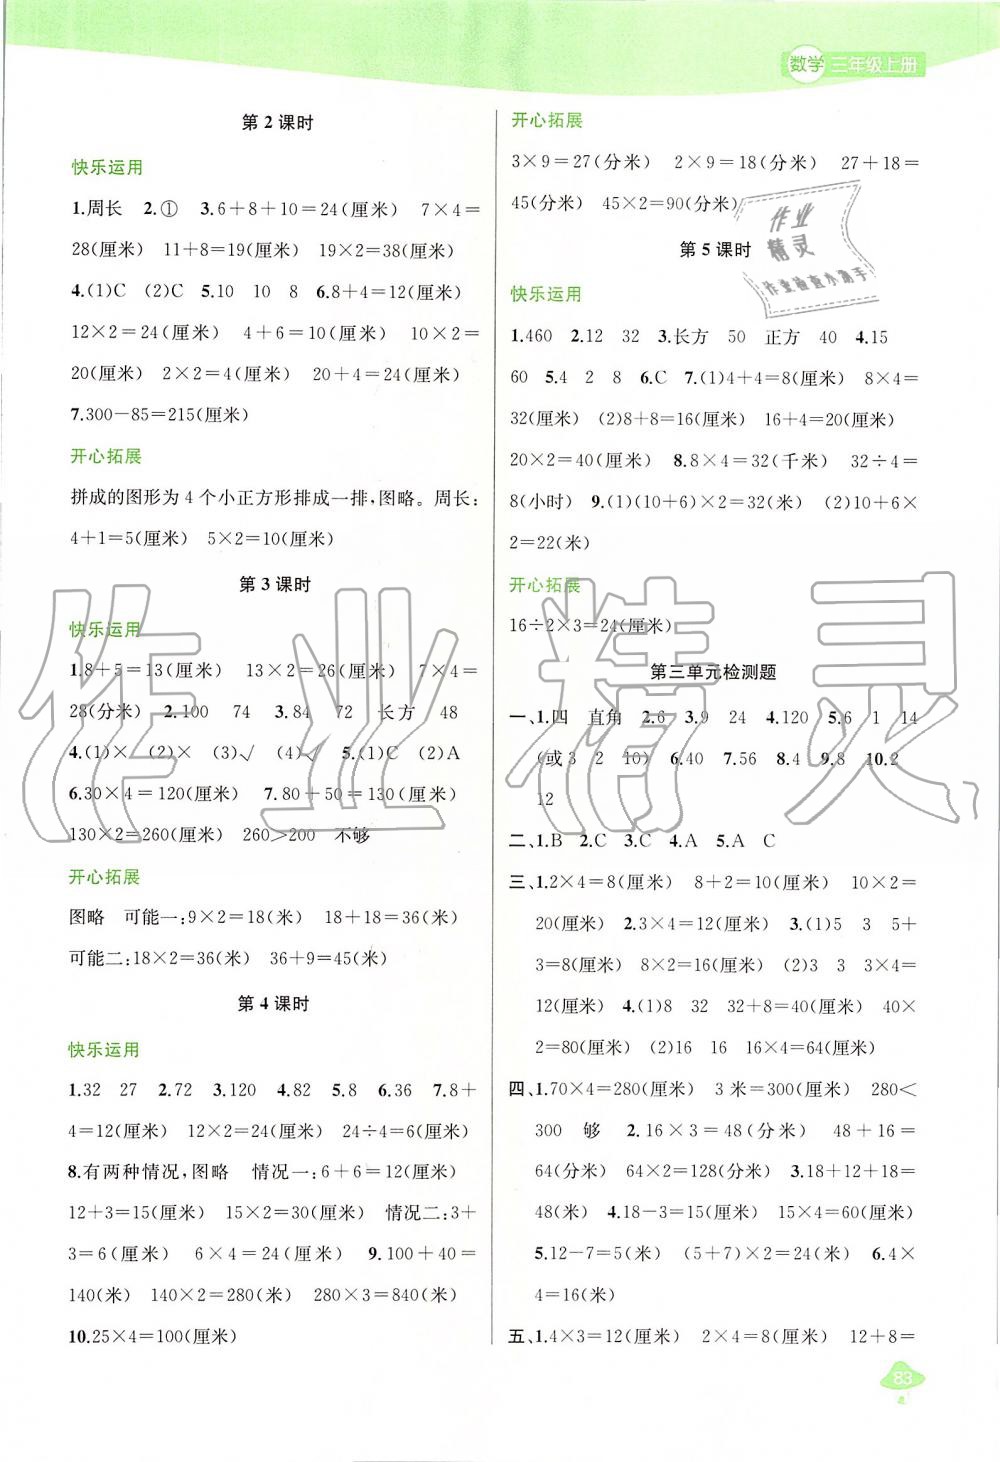 数学 三年级上册
第2课时
快乐运用
1.周长 2.① 3.6+8+10=24(厘米) 7×4=
28(厘米) 11+8=19(厘米) 19×2=38(厘米)
4.(1)C (2)C 5.10 10 8 6.8+4=12(厘米)
12×2=24(厘米) 4+6=10(厘米) 10×2=
20(厘米) 2×2=4(厘米) 20+4=24(厘米)
7.300-85=215(厘米)
开心拓展
拼成的图形为4个小正方形排成一排,图略。周长:
4+1=5(厘米) 5×2=10(厘米)
第3课时
快乐运用
1.8+5=13(厘米) 13×2=26(厘米) 7×4=
28(分米) 2.100 74 3.84 72 长方 48
4.(1)× (2)× (3)√ (4)√ 5.(1)C (2)A
6.30×4=120(厘米) 7.80+50=130(厘米)
130×2=260(厘米) 260>200 不够
开心拓展
图略 可能一:9×2=18(米) 18+18=36(米)
可能二:18×2=36(米) 36+9=45(米)
第4课时
快乐运用
1.32 27 2.72 3.120 4.82 5.8 6.36 7.8+
4=12(厘米) 12×2=24(厘米) 24÷4=6(厘米)
8.有两种情况,图略 情况一:6+6=12(厘米)
12+3=15(厘米) 15×2=30(厘米) 情况二:3+
3=6(厘米) 6×4=24(厘米) 9.100+40=
140(米) 140×2=280(米) 280×3=840(米)
10.25×4=100(厘米)
开心拓展
3×9=27(分米) 2×9=18(分米) 27+18=
45(分米) 45×2=90(分米)
作业
精灵
作业检查小助手
第5课时
快乐运用
1.460 2.12 32 3.长方 50 正方 40 4.15
60 5.4 2 8 6.C 7.(1)4+4=8(厘米) 8×4=
32(厘米) (2)8+8=16(厘米) 16+4=20(厘米)
20×2=40(厘米) 8.8×4=32(千米) 32÷4=
8(小时) 9.(1)(10+6)×2=32(米) (2)10+6×
2=22(米)
开心拓展
16÷2×3=24(厘米)
第三单元检测题
一、1.四 直角 2.6 3.9 24 4.120 5.6 1 14
(或3 2 10) 6.40 7.56 8.4 9.8 10.2
12
二、1.B 2.C 3.C 4.A 5.A C
三、1.2×4=8(厘米) 8+2=10(厘米) 10×2=
20(厘米) 2.3×4=12(厘米) 3.(1)5 3 5+
3=8(厘米) 8×2=16(厘米) (2)3 3 3×4=
12(厘米) 4.(1)8 32 32+8=40(厘米) 40×
2=80(厘米) (2)16 16 16×4=64(厘米)
四、1.70×4=280(厘米) 3米=300(厘米) 280<
300 够 2.16×3=48(分米) 48+16=
64(分米) 64×2=128(分米) 3.18+12+18=
48(米) 4.18-3=15(米) 15×4=60(厘米)
5.12-7=5(米) (5+7)×2=24(米) 6.4×
4=16(米)
五、1.4×3=12(厘米) 2×4=8(厘米) 12+8=
83
作业精灵